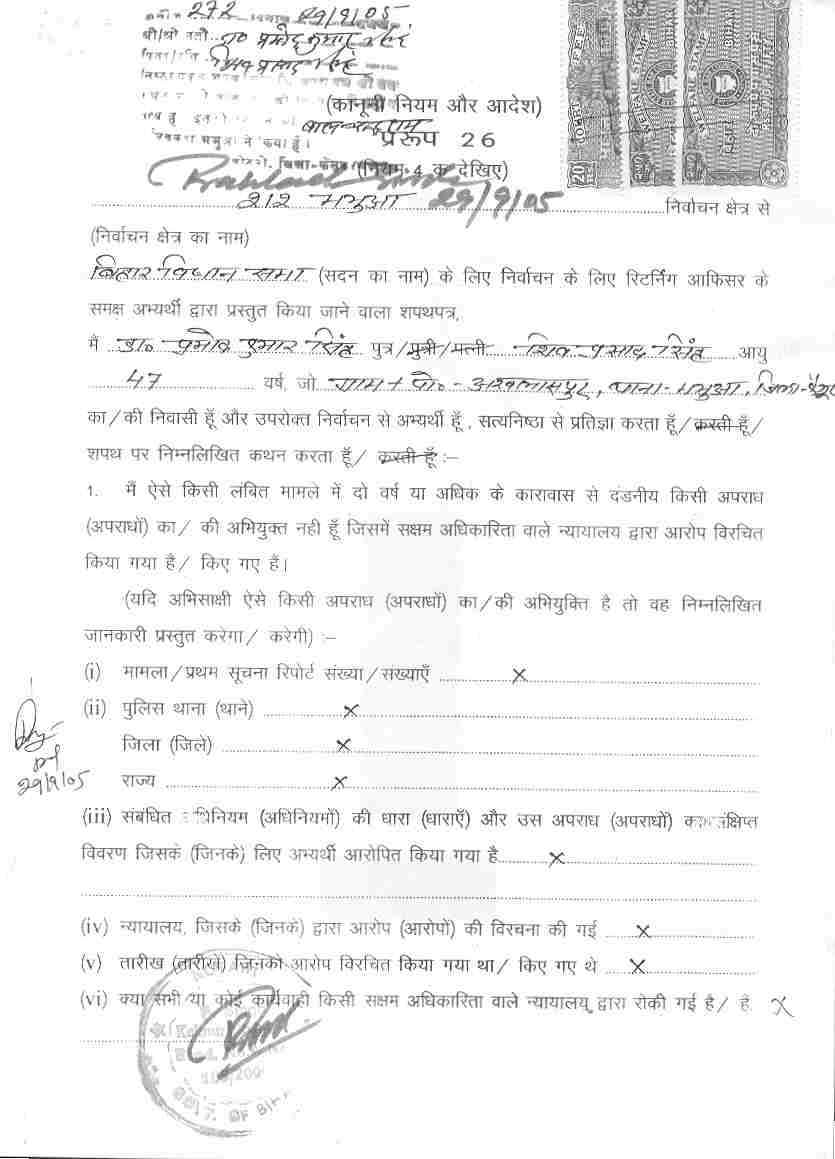 272 29/9/05
श्री/श्री मती डा० प्रमोद कुमार सिंह
शिव प्रसाद सिंह
(कानूनी नियम और आदेश)
प्ररूप 26
(नियम-4 क देखिए)
212 भभुआ 29/9/05 निर्वाचन क्षेत्र से
(निर्वाचन क्षेत्र का नाम)
बिहार विधान सभा (सदन का नाम) के लिए निर्वाचन के लिए रिटर्निंग आफिसर के
समक्ष अभ्यर्थी द्वारा प्रस्तुत किया जाने वाला शपथपत्र,
मैं डा० प्रमोद कुमार सिंह पुत्र/पुत्री/पत्नी शिव प्रसाद सिंह आयु
47 वर्ष, जो ग्राम + पो०-अखलासपुर, थाना-भभुआ, जिला-कैमूर
का/की निवासी हूँ और उपरोक्त निर्वाचन से अभ्यर्थी हूँ, सत्यनिष्ठा से प्रतिज्ञा करता हूँ/ करती हूँ/
शपथ पर निम्नलिखित कथन करता हूँ/ करती हूँ :–
1. मैं ऐसे किसी लंबित मामले में दो वर्ष या अधिक के कारावास से दंडनीय किसी अपराध
(अपराधों) का/ की अभियुक्त नही हूँ जिसमें सक्षम अधिकारिता वाले न्यायालय द्वारा आरोप विरचित
किया गया है/ किए गए हैं।
(यदि अभिसाक्षी ऐसे किसी अपराध (अपराधों) का/की अभियुक्ति है तो वह निम्नलिखित
जानकारी प्रस्तुत करेगा/ करेगी) :–
(i) मामला/प्रथम सूचना रिपोर्ट संख्या/संख्याएँ x
(ii) पुलिस थाना (थाने) x
जिला (जिले) x
राज्य x
29/9/05
(iii) संबंधित अधिनियम (अधिनियमों) की धारा (धाराएँ) और उस अपराध (अपराधों) का संक्षिप्त
विवरण जिसके (जिनके) लिए अभ्यर्थी आरोपित किया गया है x
(iv) न्यायालय, जिसके (जिनके) द्वारा आरोप (आरोपों) की विरचना की गई x
(v) तारीख (तारीखें) जिनको आरोप विरचित किया गया था/ किए गए थे x
(vi) क्या सभी या कोई कार्यवाही किसी सक्षम अधिकारिता वाले न्यायालय द्वारा रोकी गई है/ हैं. x
GOVT. OF BIHAR